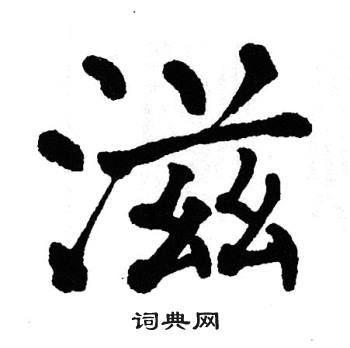 滋
词典网